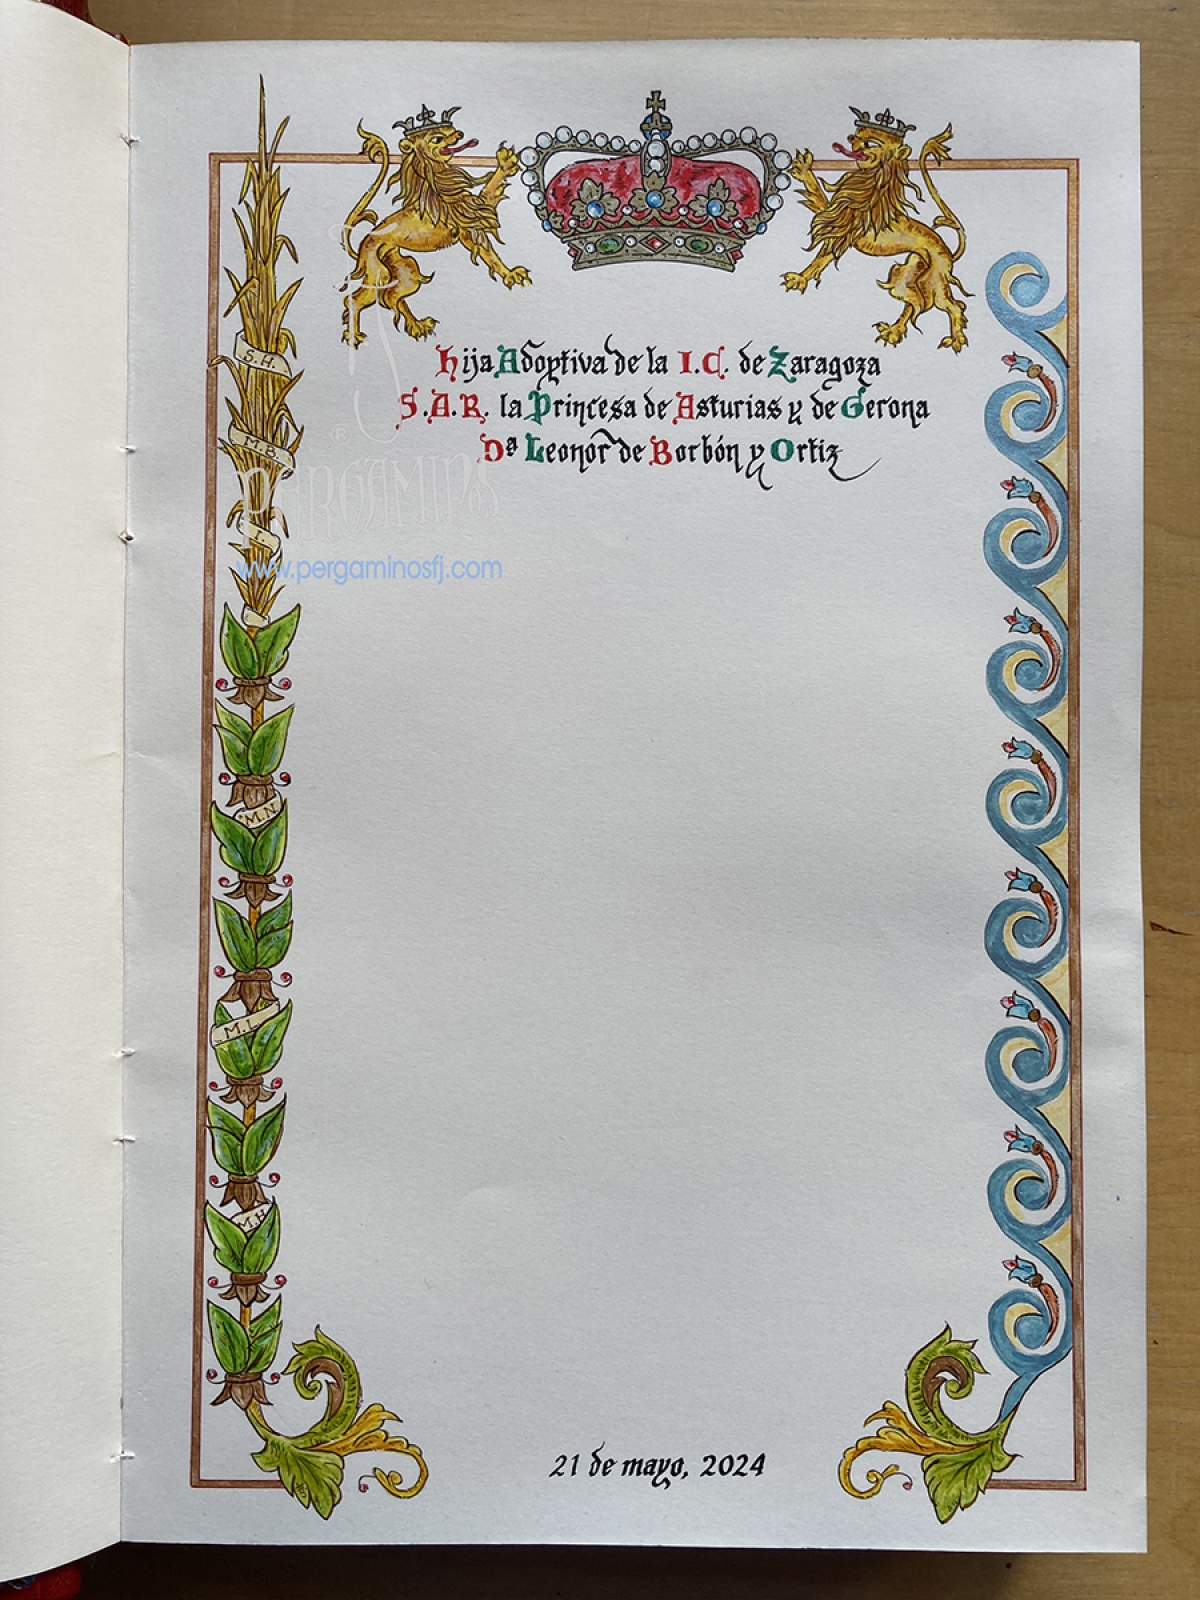 Hija Adoptiva de la I.C. de Zaragoza
S.A.R. la Princesa de Asturias y de Gerona
Dª Leonor de Borbón y Ortiz
®
PERGAMINOS
www.pergaminosfj.com
S.H.
M.B.
I.
M.N.
M.L.
M.H.
21 de mayo, 2024